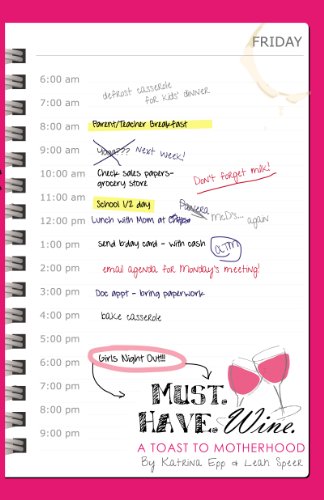 FRIDAY
6:00 am
defrost casserole
for kids' dinner
7:00 am
8:00 am Parent/Teacher Breakfast
9:00 am Yoga??? Next week!
10:00 am Check sales papers-
grocery store
Don't forget milk!
11:00 am School 1/2 day
12:00 pm Lunch with Mom at Panera
McD's... again
1:00 pm send b-day card - with cash ATM
2:00 pm email agenda for Monday's meeting!
3:00 pm Doc appt - bring paperwork
4:00 pm bake casserole
5:00 pm
6:00 pm Girls Night Out!!!
7:00 pm
8:00 pm
9:00 pm
MUST.
HAVE. Wine.
A TOAST TO MOTHERHOOD
By Katrina Epp & Leah Speer